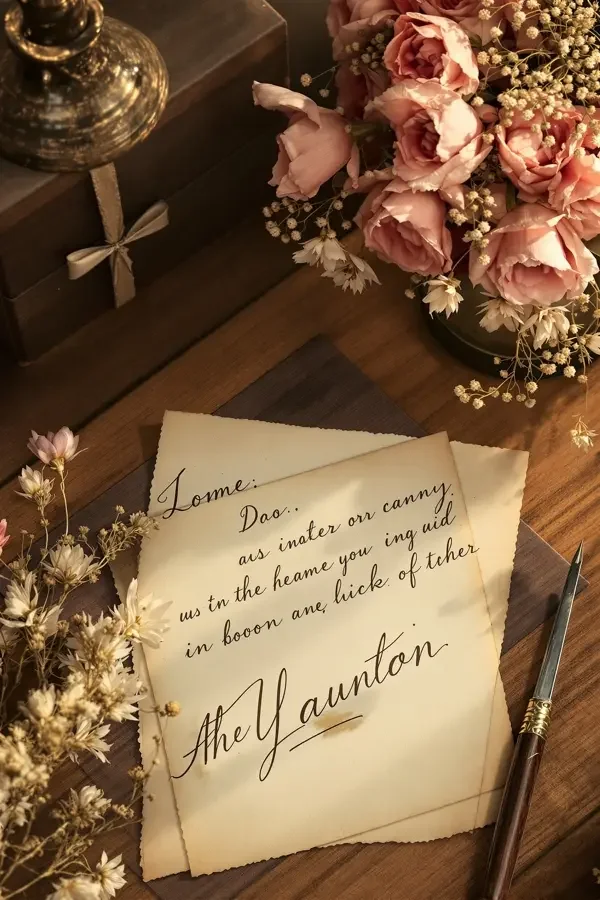 Lome:
Dao..
aus inater orr canny.
us tn the heame you ing uid
in booon ane, hick. of tcher
Ahe Yaunton